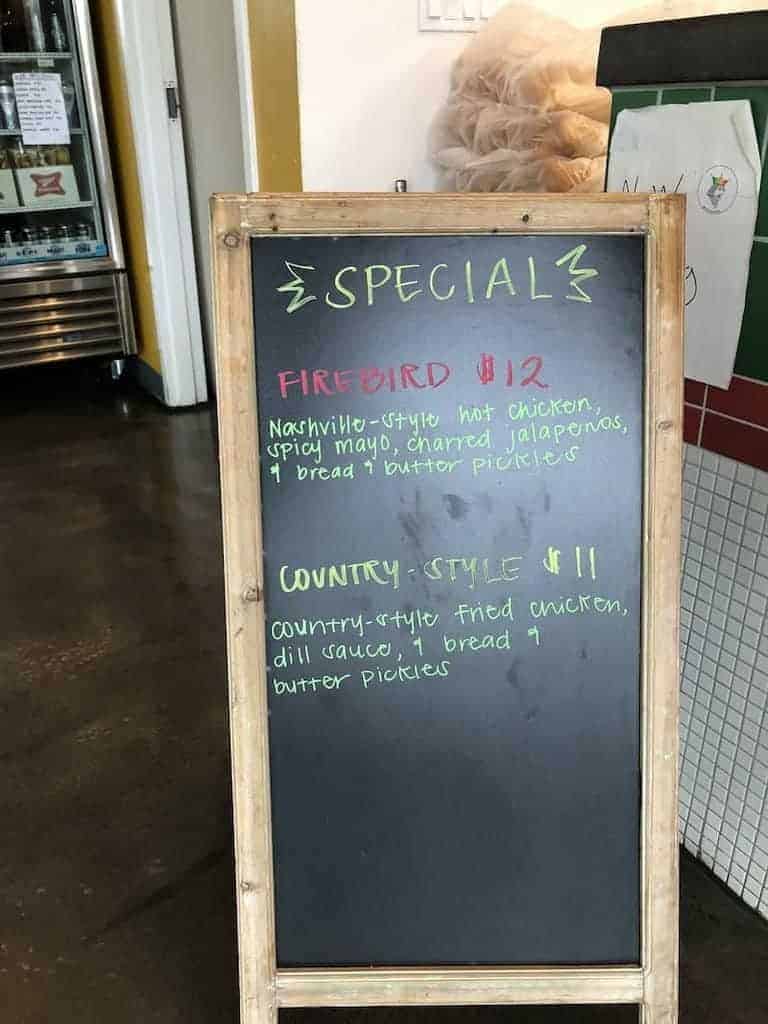 SPECIAL
FIREBIRD $12
Nashville-style hot chicken,
spicy mayo, charred jalapenos,
& bread & butter pickles
COUNTRY-STYLE $11
country-style fried chicken,
dill sauce, & bread &
butter pickles